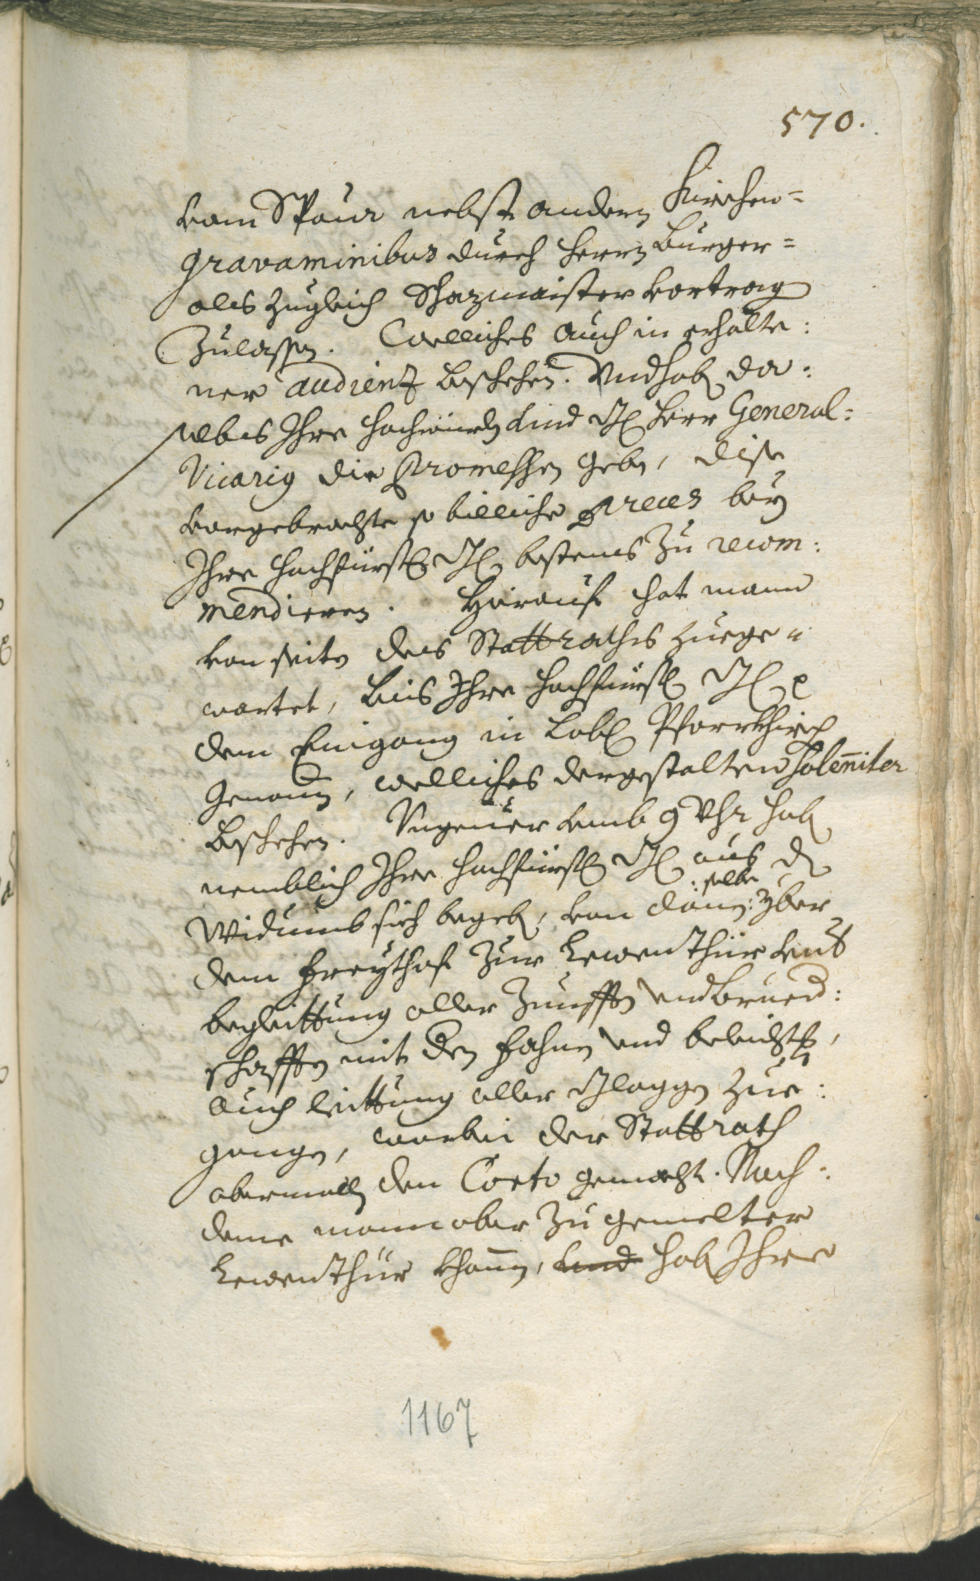 570.
von Spaur nebst andern Kirchen=
gravaminibus durch Herrn Burger=
als zugleich Schazmaister vortrag
Zulassen. Welliches auch in erhalte:
ner audienz beschehen. Vnd hab da:
selbs Ihre hochwürden vnd Gl Herr General:
Vicarig die Promessen geben, dise
vorgebrachte so billiche preces bey
Ihro hochfürstl Gl bestens zu recom:
mendieren. Hierauf hat mann
von seiten des Stattraths zuege=
wartet, biis Ihro hochfürstl Gl
dem Eingang in Lobl Pfarrkhirch
genomen, welliches dergestalten Solen̄iter
beschehen. Vngeuer vmb 9 Vhr hab
nemblich Ihro hochfürstl Gl aus dem
Widumb sich begeben, von dannen :selbe: yber
dem Freythof zur Lewenthür vnd
begleittung aller Zünfften vnd Brued:
schafften mit den Fahnen vnd beleicht,
auch leittung aller Gloggen zue:
gangen, worbei der Stattrath
abermallen den Corto gemacht. Nach:
deme mann aber zu gemelter
Lewenthür khomen, vnd hab Ihro
1167